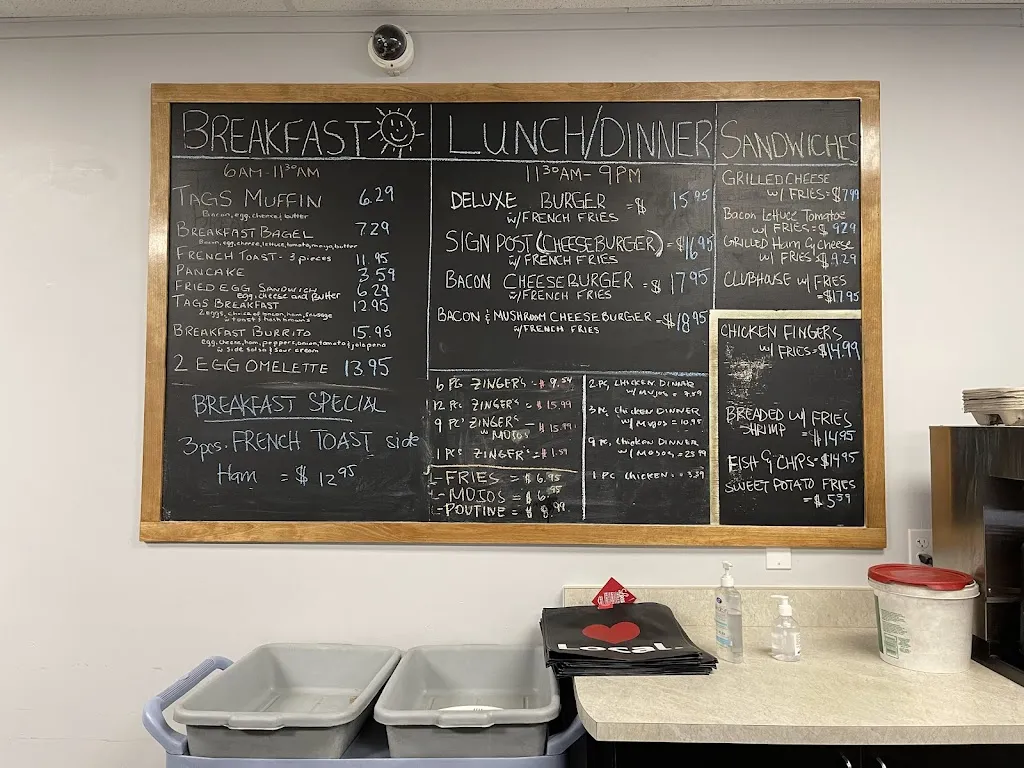 BREAKFAST
6AM-11³⁰AM
TAGS MUFFIN 6.29
Bacon, egg, cheese & butter
BREAKFAST BAGEL 7.29
Bacon, egg, cheese, lettuce, tomato, mayo, butter
FRENCH TOAST - 3 pieces 11.95
PANCAKE 3.59
FRIED EGG SANDWICH 6.29
Egg, cheese and Butter
TAGS BREAKFAST 12.95
2 eggs, choice of bacon, ham, sausage
w toast & hashbrowns
BREAKFAST BURRITO 15.95
egg, cheese, ham, peppers, onion, tomato & jalapeno
w side salsa & sour cream
2 EGG OMELETTE 13.95
BREAKFAST SPECIAL
3pcs. FRENCH TOAST side
Ham = $12⁹⁵
LUNCH/DINNER
11³⁰AM-9PM
DELUXE BURGER = $ 15.95
w/FRENCH FRIES
SIGN POST (CHEESEBURGER) = $16.95
w/FRENCH FRIES
BACON CHEESEBURGER = $ 17.95
w/FRENCH FRIES
BACON & MUSHROOM CHEESEBURGER = $18.95
w/FRENCH FRIES
6 Pc ZINGER'S = $ 9.59
12 Pc ZINGER'S = $15.99
9 PC ZINGER'S - $15.99
w MOJOS
1 PC ZINGER'S = $1.59
-FRIES = $6.95
-MOJOS = $6.95
-POUTINE = $8.99
2 PC, CHICKEN DINNER
w/ MOJOS = 7.59
3 PC, Chicken DINNER
w/ MOJOS = 10.95
9 PC, Chicken DINNER
w/ MOJOS =
1 PC CHICKEN = 3.39
SANDWICHES
GRILLED CHEESE
w/ FRIES = $7.99
Bacon Lettuce Tomatoe
w/ FRIES = $ 9.29
GRILLED Ham & cheese
w/ FRIES $9.29
CLUBHOUSE w/ FRIES
= $17.95
CHICKEN FINGERS
w/ FRIES = $14.99
BREADED w/ FRIES
SHRIMP = $14.95
FISH & CHIPS = $14.95
SWEET POTATO FRIES
= $5.59
Local.